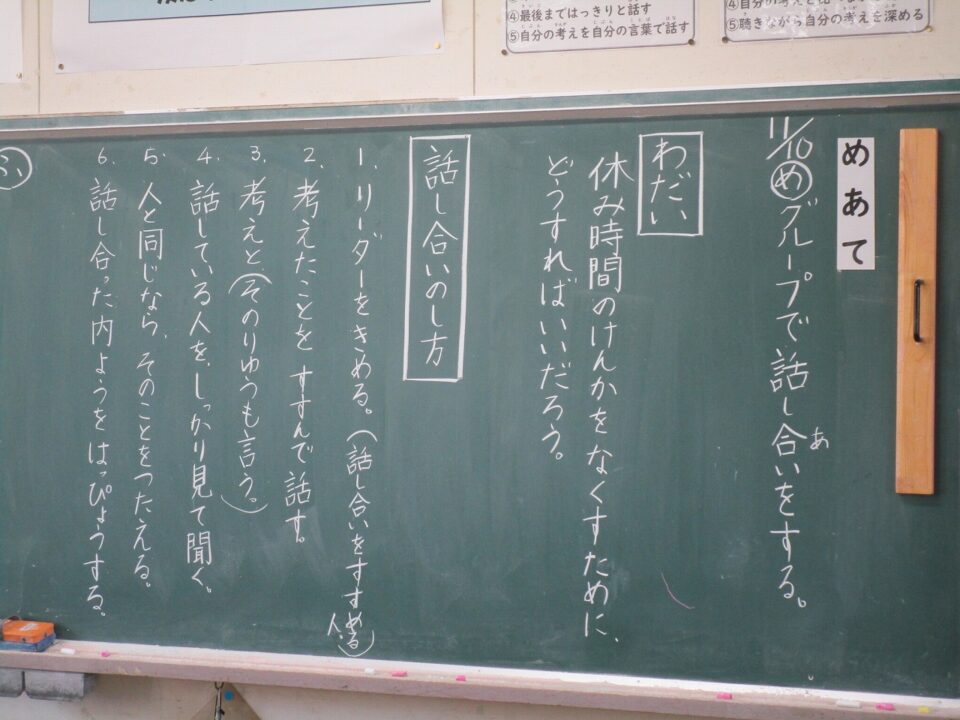 ④最後まではっきりと話す
⑤自分の考えを自分の言葉で話す
⑤聴きながら自分の考えを深める
めあて
11/10 めグループで話し合いをする。
あ
わだい
休み時間のけんかをなくすために、
どうすればいいだろう。
話し合いのし方
1. リーダーをきめる。(話し合いをすすめる人)
2. 考えたことを すすんで話す。
3. 考えと(そのりゆうも言う。)
4. 話している人を、しっかり見て聞く。
5. 人と同じなら、そのことをつたえる。
6. 話し合った内ようをはっぴょうする。